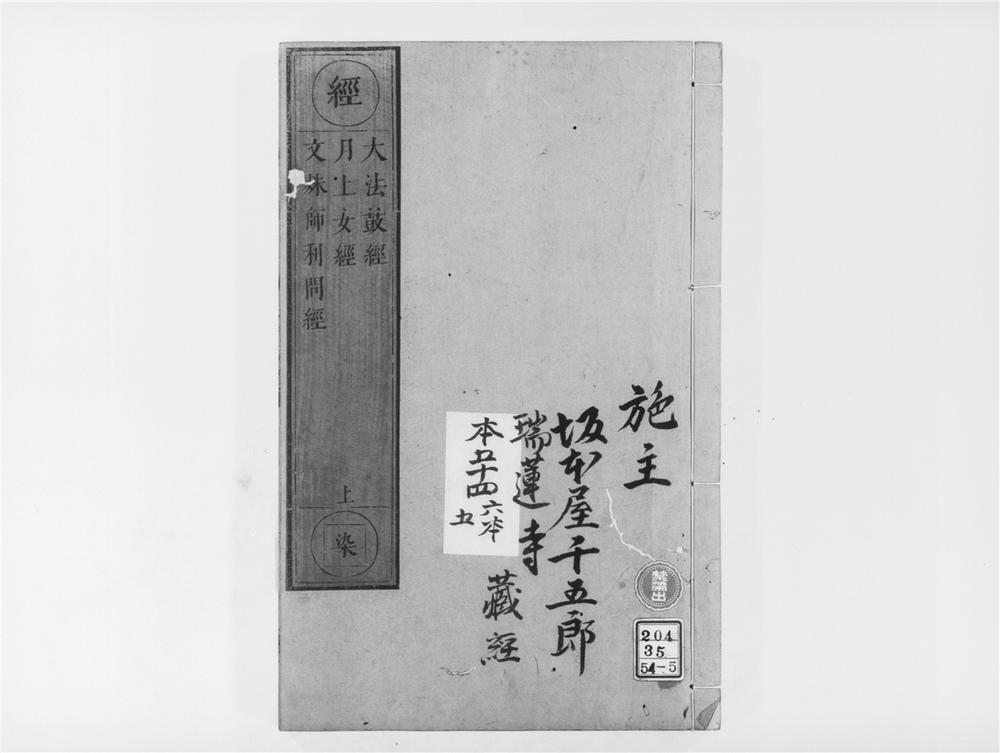 經
大法鼓經
月上女經
文殊師利問經
上
染
施主
坂本屋千五郎
瑞蓮寺
藏経
本五十四
六本
五
禁帯出
204
35
54-5